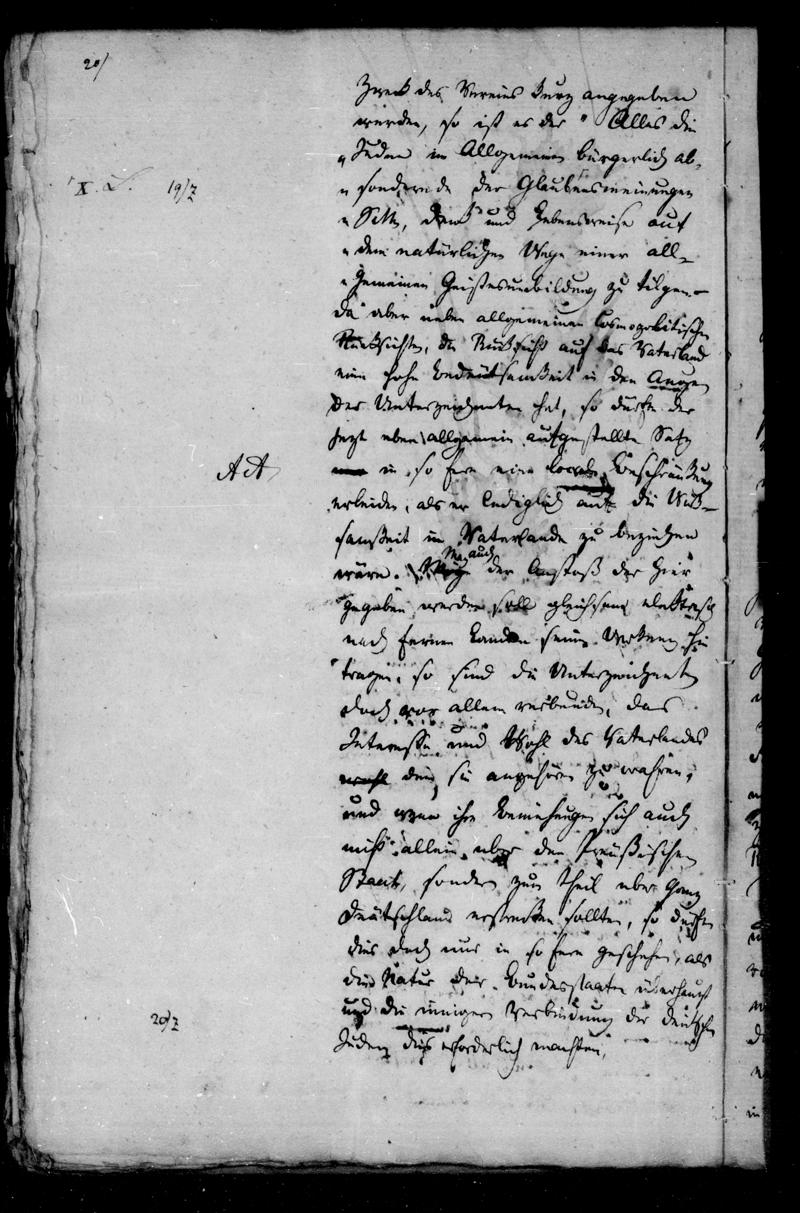 20/
Zweck des Vereins kurz angegeben
werden, so ist es der " Alles die
" Juden im Allgemeinen bürgerlich ab-
X. L. 19/z
" sondernde der Glaubensmeinungen
" Sitte, Denk und Lebensweise auf
" dem natürlichen Wege einer all-
" gemeinen Geistesumbildung zu tilgen.—
da aber neben allgemeinen Cosmopolitischen
Rücksichten, die Rücksicht auf das Vaterland
eine hohe Bedeutsamkeit in den Augen
der Unterzeichneten hat, so dürfte der
jezt eben allgemein aufgestellte Satz
AA
in so fern eine locale Beschränkung
erleiden, als er lediglich auf die Wirk-
samkeit im Vaterlande zu beziehen
wäre. Mag auch der Anstoß der hier
gegeben werden soll gleichsam elektrisch
nach fernen Landen seine hin
tragen, so sind die Unterzeichneten
doch vor allem verbunden, das
Interesse und Wohl des Vaterlandes
dem sie angehören zu wahren;
und wenn ihre Bemühungen sich auch
nicht allein über den Preußischen
Staat, sondern zum Theil über Ganz
Deutschland erstrecken sollten, so dürfte
dies doch nur in so fern geschehen, als
die Natur der Bundesstaaten überhaupt
und die innigere Verbindung der deutschen
20/z
Juden dies erforderlich machten,